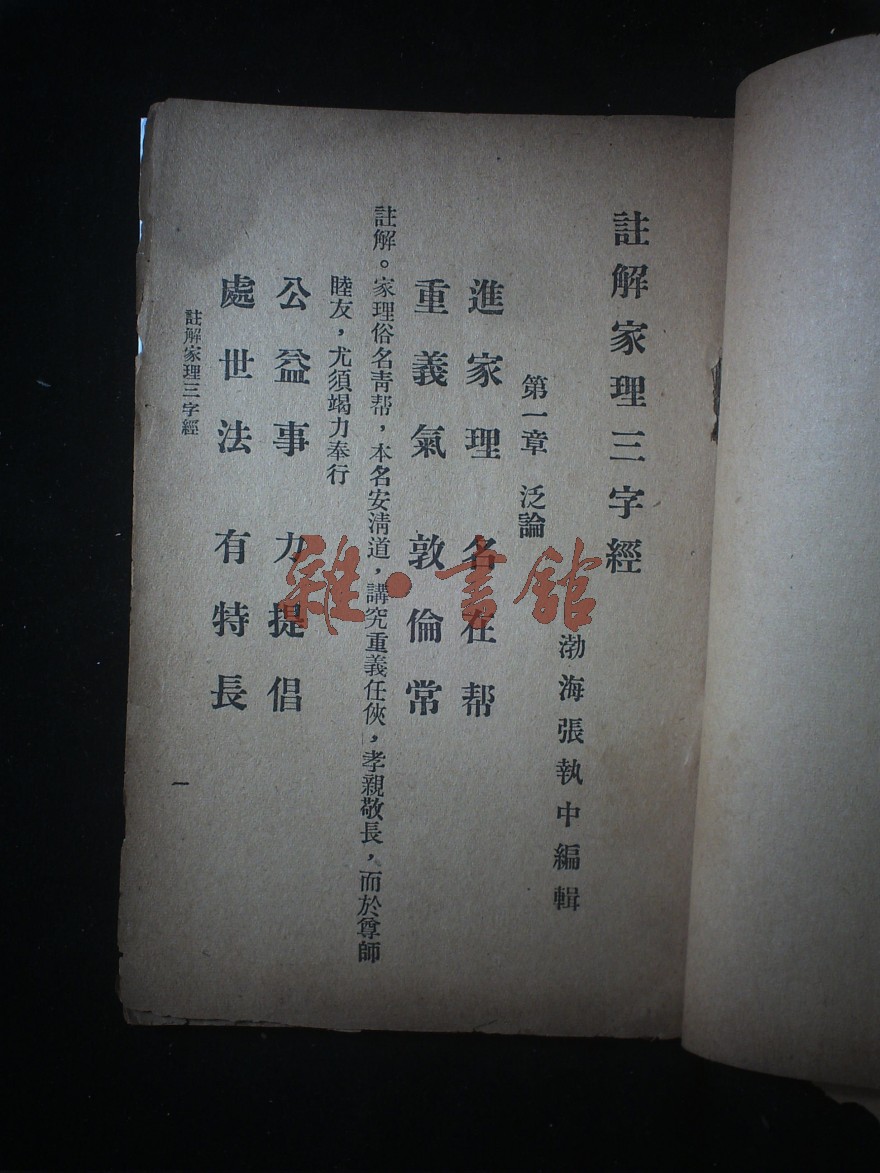 註解家理三字經
渤海張執中編輯
第一章 泛論
進家理 名在帮
重義氣 敦倫常
註解。家理俗名青帮，本名安清道，講究重義任俠，孝親敬長，而於尊師
睦友，尤須竭力奉行
公益事 力提倡
處世法 有特長
註解家理三字經
一
雜·書館